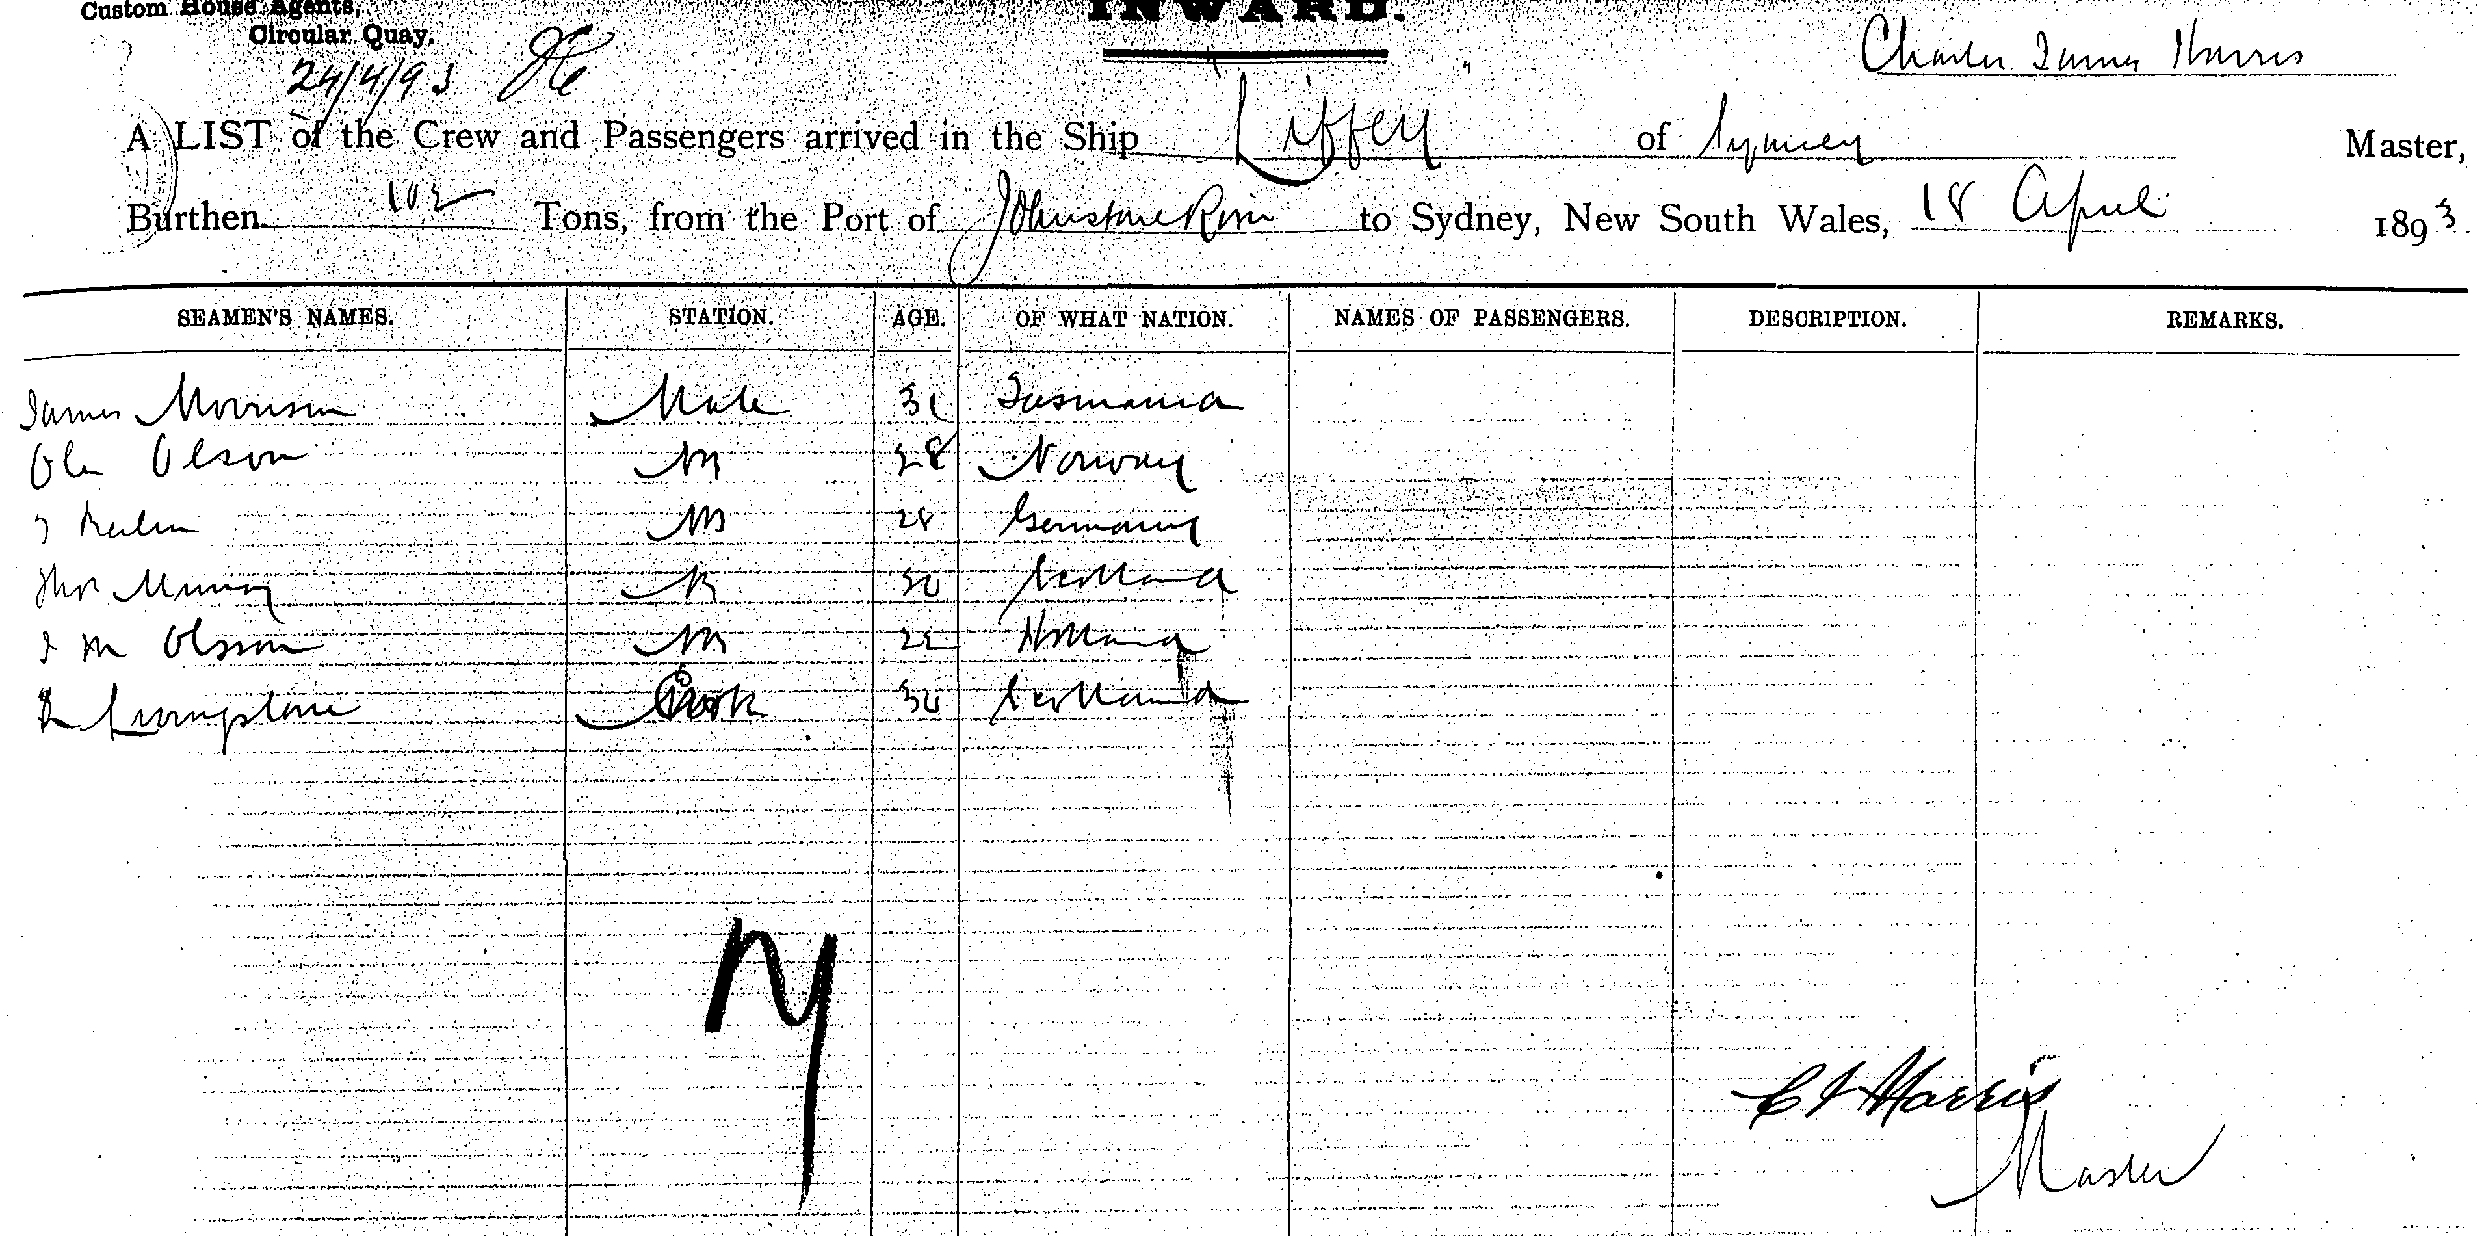 Custom House Agents,
INWARD.
Circular Quay,
Charles James Harris
24/4/93
A LIST of the Crew and Passengers arrived in the Ship "Liffey" of Sydney Master,
Burthen 102 Tons, from the Port of Johnstone River to Sydney, New South Wales, 18 April 1893
SEAMEN'S NAMES. STATION. AGE. OF WHAT NATION. NAMES OF PASSENGERS. DESCRIPTION. REMARKS.
James Morrison Mate 31 Tasmania
Ole Olson AB 28 Norway
AB 28 Germany
Thos Murray AB 30 Scotland
J M Olsson AB 22 Holland
R Livingstone Cook 30 Scotland
C J Harris
Master